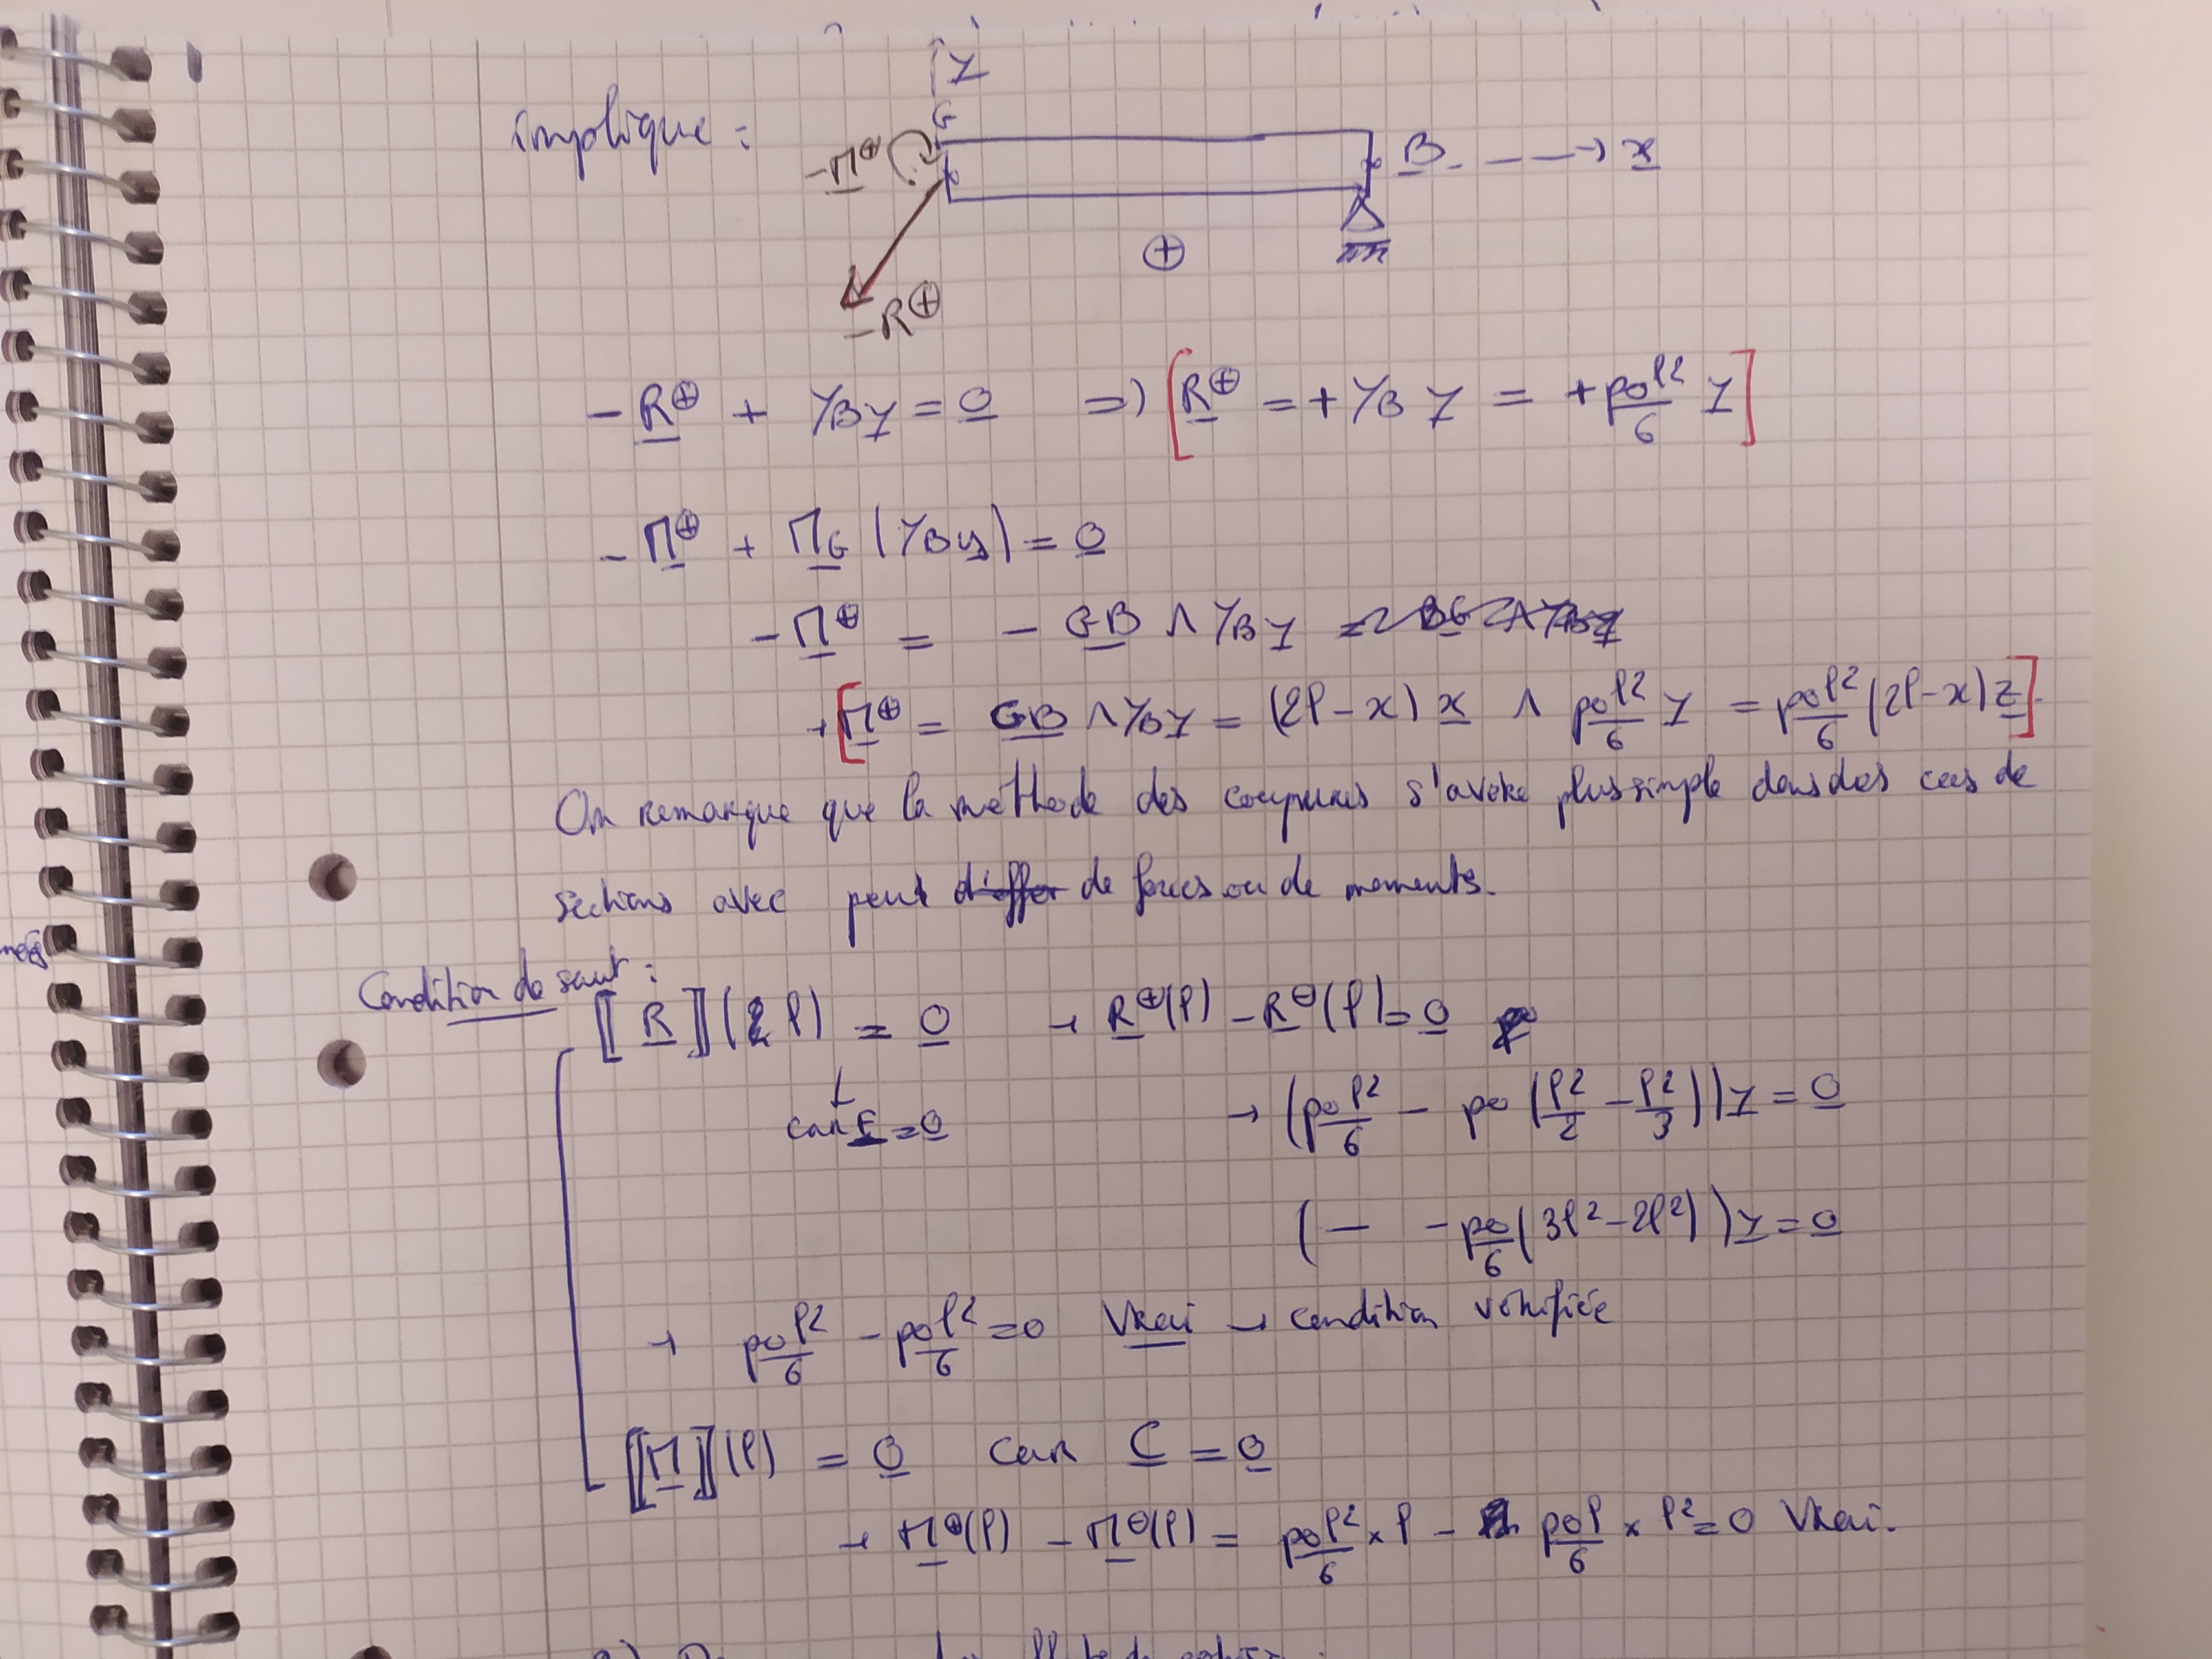 y
G
implique :
-M⊕
B
x
⊕
-R⊕
- R⊕ + YB y = 0 => [R⊕ = + YB y = + p0 l²/6 y]
- M⊕ + MG (YB y) = 0
- M⊕ = - GB ∧ YB y
→ [M⊕ = GB ∧ YB y = (2l-x) x ∧ p0 l²/6 y = p0 l²/6 (2l-x) z].
On remarque que la méthode des coupures s'avère plus simple dans des cas de
sections avec peu de forces ou de moments.
Condition de saut :
[[R]](l) = 0 → R⊕(l) - R⊖(l) = 0
car F = 0 → (p0 l²/6 - p0 (l²/2 - l²/3)) y = 0
(— - p0/6 (3l² - 2l²)) y = 0
→ p0 l²/6 - p0 l²/6 = 0 Vrai → condition vérifiée
[[M]](l) = 0 car C = 0
→ M⊕(l) - M⊖(l) = p0 l²/6 × l - p0 l/6 × l² = 0 Vrai.